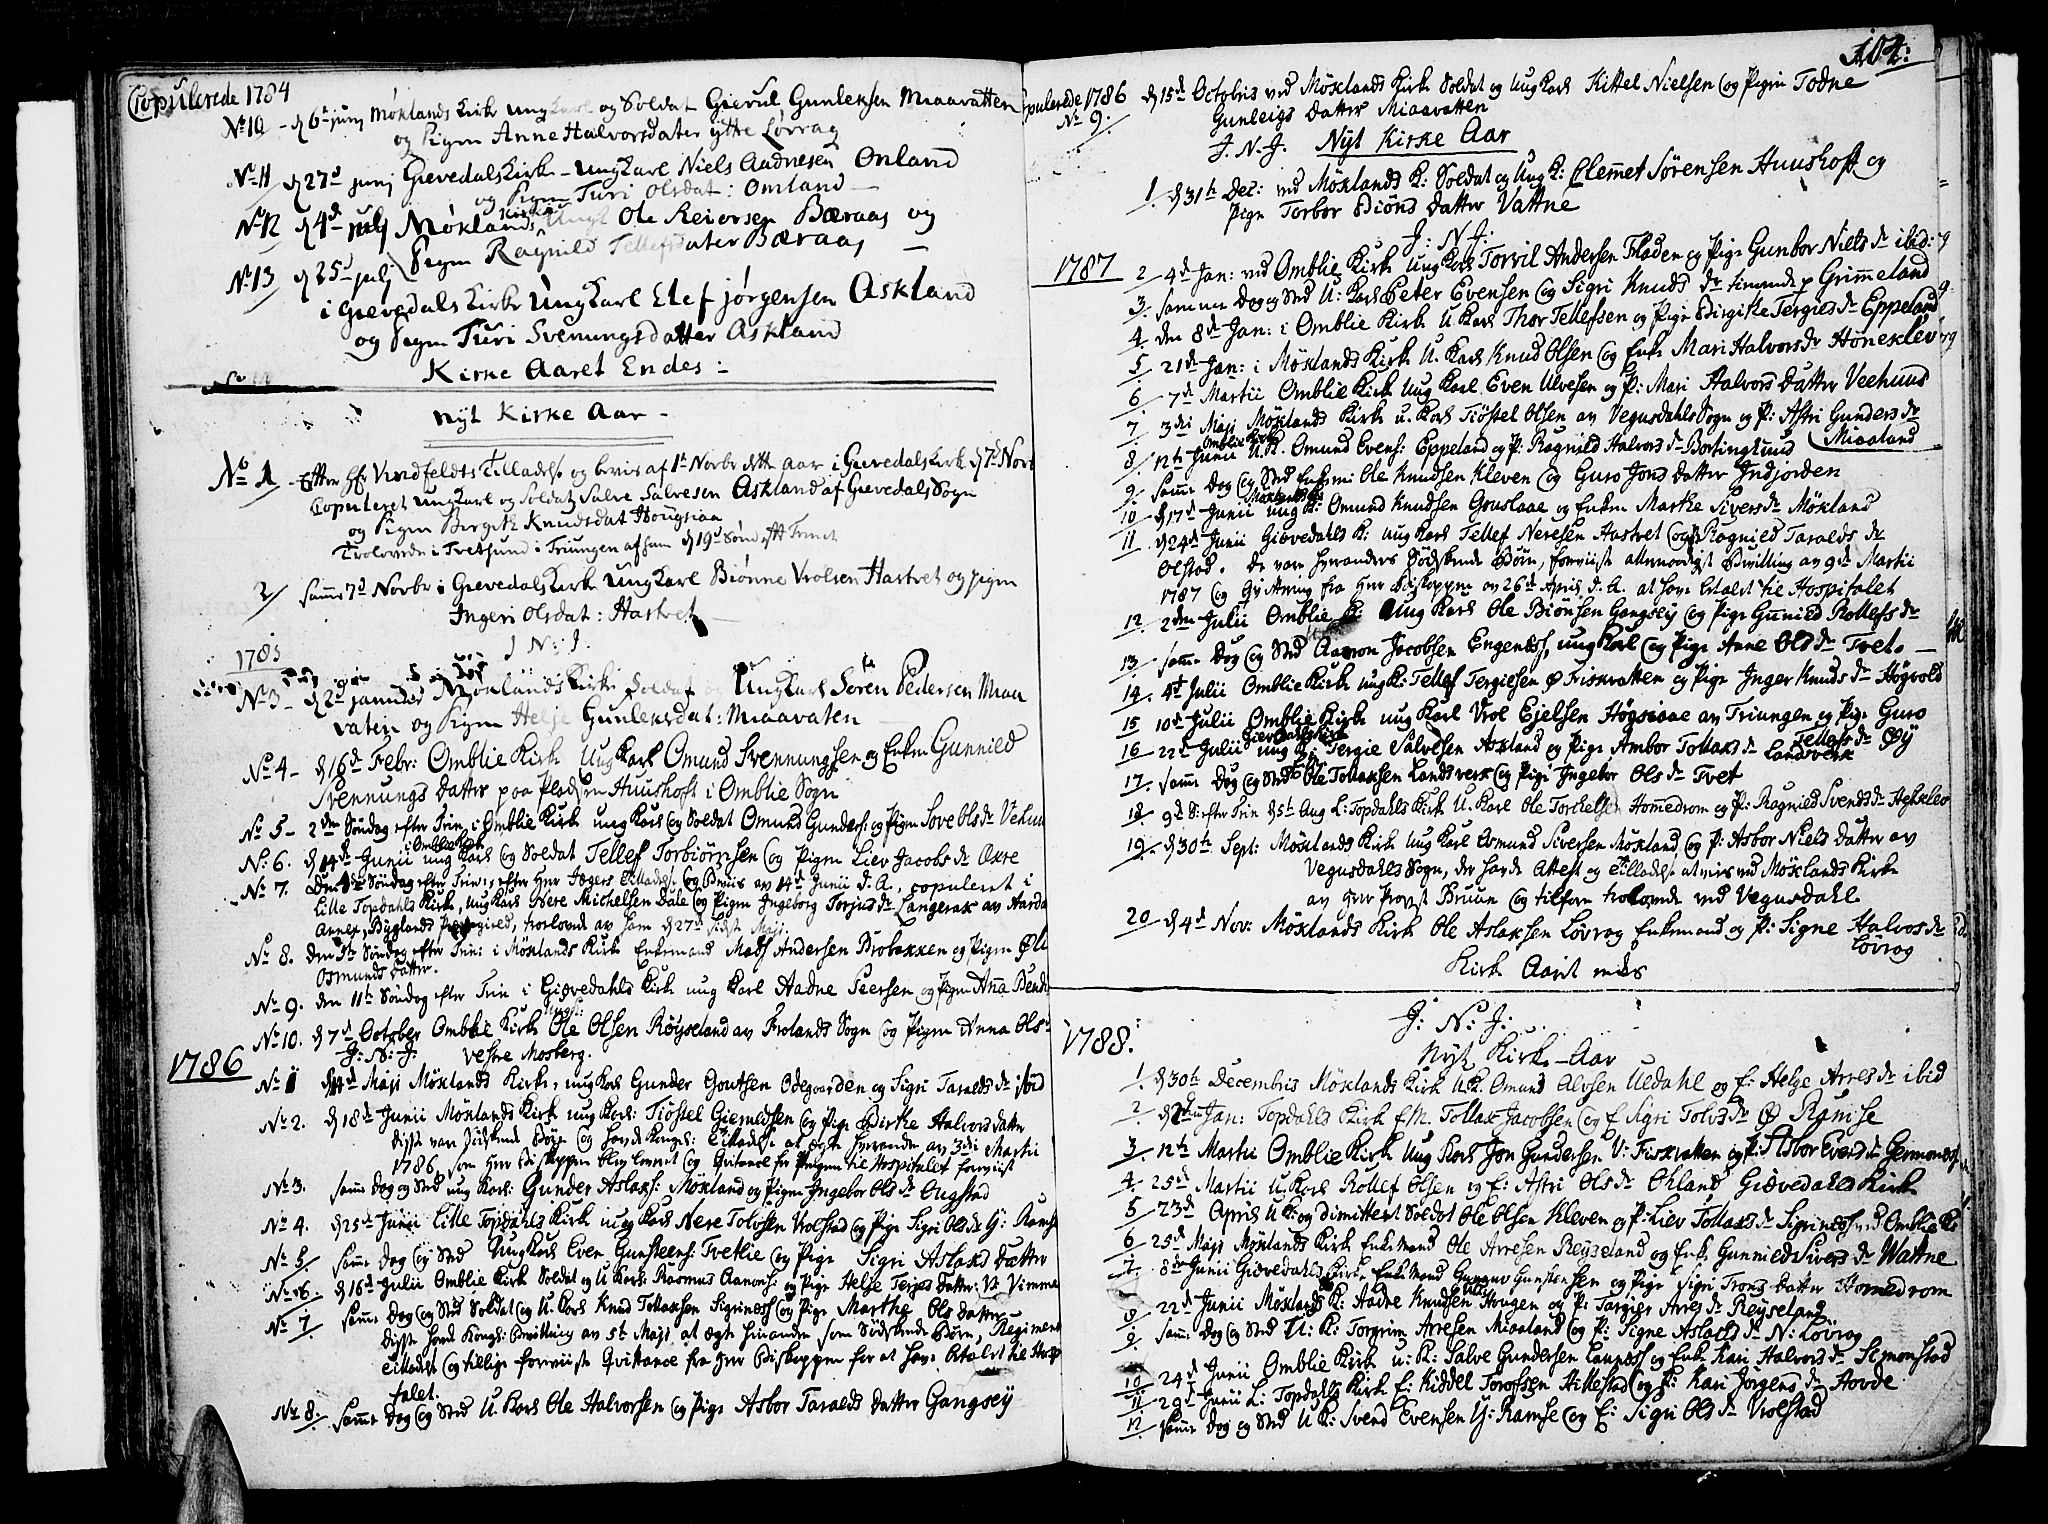 Copulerede 1784
No 10 - d 6te junj Møklands Kirke ungkarl og Soldat Gierul Gunleksen Miaavatten
og Pigen Anne Halvorsdater ytte Løvrag
No 11 d 27d junj Gievedals Kirke - ungkarl Niels Aadnesen Omland
og Pigen Turi Olsdat: Omland -
No 12 d 4d julj Møklands Kirke Ungk Ole Reiersen Bæraas og
Pigen Ragnild Tellefsdater Bæraas -
No 13 d 25d julj
i Gievedals Kirke Ungkarl Elef jørgensen Askland
og Pigen Turi Svenungsdatter Askland
Kirke Aaret Endes -
Nyt Kirke Aar -
No 1 - Efter Hr Vindfeldts Tilladelse og bevis af 1t Novbr dette aar i Gievedals Kirk d 7d Nov
Copuleret Ungkarl og Soldat Salve Salvesen Askland af Gievedals Sogn
og Pigen Birgit Knudsdat Hougsiaa
Trolovede i Tretsund i Triungen af ham d 19d Sønd eft Trinit
2/ samme 7d Novbr i Gievedals Kirk Ungkarl Biønne Vrolsen Hastvet og pigen
Ingeri Olsdat: Hastvet -
J N: J.
1785
No 3 - d 2d januar Møklands Kirke Soldat og Ungkarl Søren Pedersen Miaa
vaten og Pigen Helje Gunleksdat: Miaavaten
No 4 - d 16d Febr: Omblie Kirk Ung Karl Omund Svennungsen og Enken Gunnild
Svennungs Datter paa Pladsen Huushoft i Omblie Sogn
No 5 - 2den Søndag efter Trin. i Omblie Kirk ung Karl og Soldat Omund Gunders: og Pigen Love Ols dr Vehuu
No 6. d 14d Junii i Omblie Kirk ung Karl og Soldat Tellef Torbiørnsen og Pigen Liev Jacobs dr Oxre
No 7. Den Søndag efter Trin:, efter Herr Hægers Tilladelse og Beviis av 14d Junii d. A. copuleret i
Lille Topdahls Kirk, ung Karl Nere Michelsen Dale og Pigen Ingeborg Torjus dr Langerak av Aarda
Annex, Byglands Præstegield, trolovede av ham d 27d sidst Maji.
No 8. den Søndag efter Trin: i Møklands Kirk Enkemand Mads Andersen Brobakken og Pigen
Osmunds Datter.
No 9. den 11te Søndag efter Trin i Giævedahls Kirk ung Karl Aadne Peersen og Pigen Anna Bendt
No 10. d 7d October Omblie Kirk Ole Olsen Røyseland av Frolands Sogn og Pigen Anna Ols
J: N: J. Vestre Mosberg.
1786
No 1 d 14d Maji Møklands Kirk, ung Karl Gunder Goutsen Ødegaarden og Sigri Taralds dr ibid
No 2. d 18d Junii Møklands Kirk ung Karl: Tiøstel Giermundsen og Pige Birthe Halvors datter
disse var Sødskende Børn og havde Kongel: Tilladelse at ægte hverandre av 3die Martii
1786, som Herr Biskoppen blev leveret og Qvitance for Pengene til Hospitalet forevüst
No 3. samme Dag og Sted ung Karl: Gunder Aslaks: Møkland og Pigen Ingebor Ols dr Ougstad
No 4. d 25d Junii Lille Topdahls Kirk ung Karl Nere Tolvsen Vrolstad og Pige Sigri Ols dr Y: Ramse
No 5 samme Dag og Sted Ung Karl Even Gunsteens: Tveitlie og Pige Sigri Aslaks Datter
No 6. d 16d Julii Omblie Kirk Soldat og U. Karl Rasmus Aanons: og Pige Helje Terjes Datter: V: Vimme
No 7 samme Dag og Sted Soldat og U. Karl Knud Tollaksen Sigriness og Pige Marthe Ols datter
disse havde Kongel: Bevilling av 5te Maji at ægte hinanden som Sødskende Børn, Regiments
Tilladelse og tillige foreviiste Qvittance fra Herr Biskoppen for at have betalet til Hosp
talet.
No 8. samme Dag og Sted U. Karl Ole Halvorsen og Pige Asbor Taralds Datter Gangsey
104:
Copulerede 1786
No 9. d 15d Octobris ved Møklands Kirk Soldat og Ung Karl Kittel Nielsen og Pigen Todne
Gunleigs Datter Miaavatten
J. N. J. Nyt Kirke Aar
1. d 31te Dec: ved Møklands K: Soldat og Ung K: Clemet Sørensen Huushoft og
Pige Torbor Biøns Datter Vatne
J: N J:
1787
2 4d Jan: ved Omblie Kirk Ung Karl Torvil Andersen Fladen og Pige Gunbor Niels dr ibid:
3. samme Dag og Sted U: Karl Peter Evensen og Sigri Knuds dr tienende p Grimmeland
4. den 8d Jan: i Omblie Kirk U. Karl Thor Tellefsen og Pige Birgitte Tergies dr Eppeland
5 21d Jan: i Møklands Kirk U. Karl Knud Olsen og Enke Mari Halvors dr Høneklev
6 7d Martii Omblie Kirk Ung Karl Even Ulvesen og P: Mari Halvors Datter Veehuus
7. 3die Maji Møklands Kirk U. Karl Tiøstel Olsen av Vegusdahls Sogn og P: Astri Gunders dr
Miaaland
8 12te Junii Omblie Kirk U.K. Omund Evens: Eppeland og P: Ragnild Halvors dr Bortingkuud
9. samme Dag og Sted Enkem: Ole Knudsen Kleven og Guro Jons Datter Indjorden
10 d 17d Junii ung K: Omund Knudsen Gouslaae og Enken Marthe Sivers dr Møkland
11. d 24d Junii Giævedahls K: ung Karl Tellef Neresen Hastvet og P: Ragnild Taralds dr
Olstad. De vare hverandres Sødskende Børn, foreviiste allernaadigst Bevilling av 9d Martii
1787 og Qvittering fra Herr Biskoppen av 26d April d. A. at have betalet til Hospitalet
12. 2den Julii Omblie K: Ung Karl Ole Biønsen Gangsey og Pige Gunild Rollefs dr
13 samme Dag og Sted Aaron Jacobsen Engeness, ung Karl og Pige Anne Ols dr Tvet. -
14. 4d Julii Omblie Kirk ung K: Tellef Tergiesen Ø Fiskvatten og Pige Inger Knuds dr Høgvold
15 10d Julii Omblie Kirk ung Karl Vrol Ejelsen Høgsiaae av Triungen og Pige Guro
Tellefs dr Øÿ
16 22d Julii Gievedahls Kirk ung K: Tergie Salvesen Askland og Pige Ambor Tollaks dr Landsverk
17. samme Dag og Sted Ole Tollaksen Landsverk og Pige Ingebor Ols dr Tvet
18 9d S: efter Trin d 5te Aug L: Topdahls Kirk U. Karl Ole Torkelsen Homedrom og P: Ragnild Svends dr Heksleo
19. d 30te Sept: Møklands Kirk ung Karl Asmund Siversen Møkland og P: Asbor Niels Datter av
Vegusdahls Sogn, der havde Attest og Tilladelse at vies ved Møklands Kirke
av Herr Provst Bruun og tilforn trolovede ved Vegusdahl
20 d 4d Nov: Møklands Kirk Ole Aslaksen Løvrag Enkemand og P: Signe Halvors dr
Løvrag
Kirk Aaret endes
J: N: J:
1788.
Nyt Kirke-Aar
1. d 30te Decembris Møklands Kirk U.K. Omund Alvsen Uedahl og E: Helge Arres dr ibid
2. Jan: Topdahls Kirk E.M. Tollak Jacobsen og E Sigri Tolvs dr Ø Ramse
3. 12te Martii Omblie Kirk Ung Karl Jon Gundersen V: Fiskvatten og P: Asbor Evens dr
4. 25d Martii U. Karl Rollef Olsen og E: Astri Ols dr Ohland Giævedahls Kirk
5 23d April U.K: og dimitteret Soldat Ole Olsen Kleven og P: Liev Tollaks dr Sigriness ved Omblie Ki
6 25d Maji Møklands Kirk Enkemand Ole Arresen Reyseland og Enke Gunnild Sivers dr Wattne
7. 8de Junii Giævedahls Kirk, Enkemand Gunnar Gunstensen og Pige Sigri Trons Datter Homedrom
8 22d Junii Møklands K: Aadne Knudsen Hougen og P: Targier Arres dr Reyseland
9. samme Dag og Sted U: K: Torgrim Arresen Miaaland og P: Signe Aslaks dr N: Løvrag
10 24d Junii Omblie Kirk U: K: Salve Gundersen Launess og Enke Kari Halvors dr Semonstad
11 29d Junii L: Topdahls Kirk E: Kiddel Torofsen Hillestad og P: Kari Jorgens dr Hovde
12 samme Dag og Sted U K: Svend Evensen Y: Ramse og E: Sigri Ols dr Vrolstad